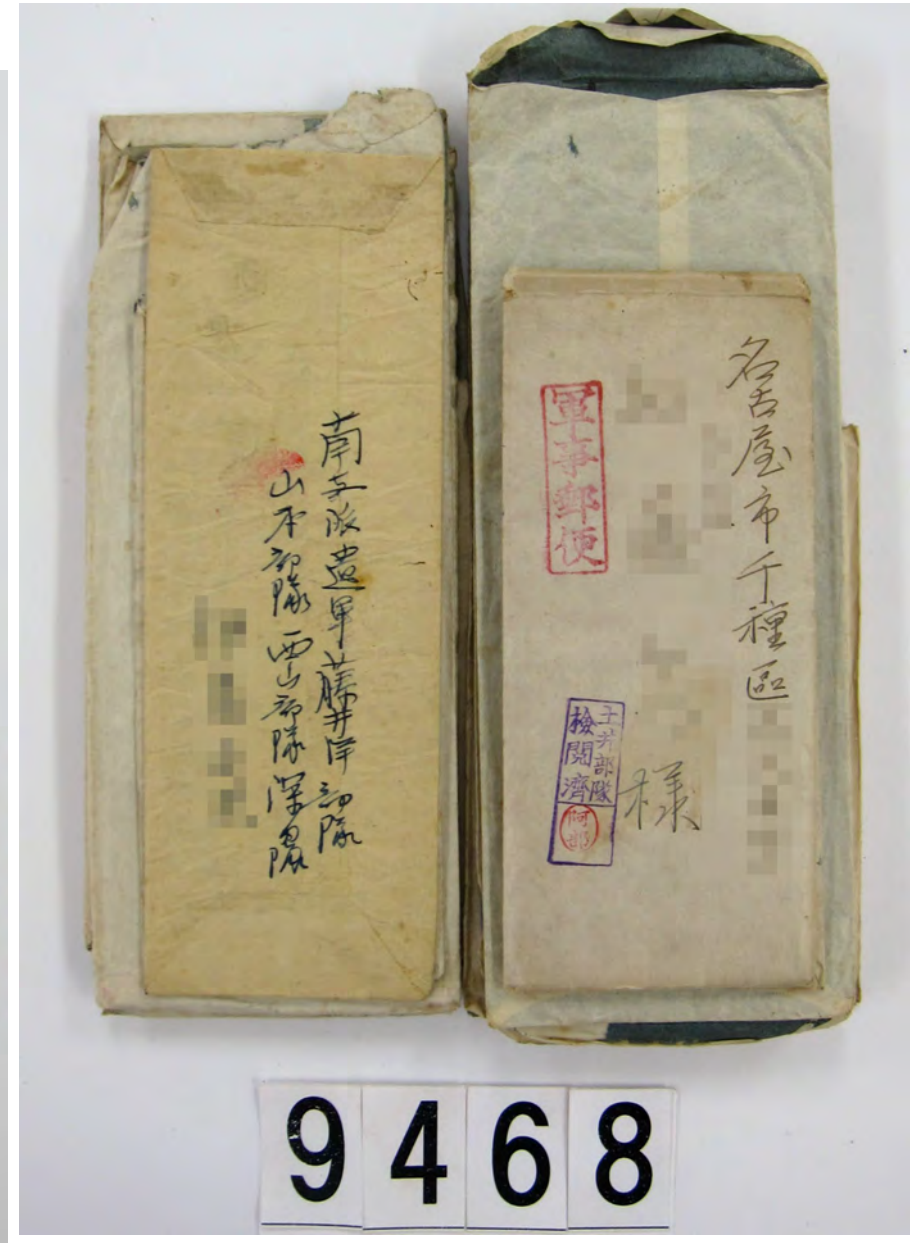 南支派遣軍藤井洋部隊
山本部隊西山部隊深見隊
名古屋市千種區
様
軍事郵便
土井部隊
檢閲濟
阿部
9468